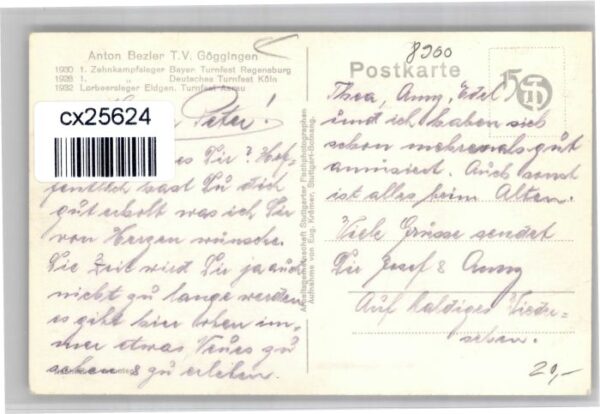 Anton Bezler T.V. Göggingen
1930 1. Zehnkampfsieger Bayer. Turnfest Regensburg
1928 1. " Deutsches Turnfest Köln
1932 Lorbeersieger Eidgen. Turnfest Aarau
cx25624
Peter!
es Dir? Hof-
fentlich hast Du dich
gut erholt was ich Dir
von Herzen wünsche.
Die Zeit wird Dir ja auch
nicht zu lange werden
es gibt hier oben im-
mer etwas Neues zu
sehen & zu erleben.
Arbeitsgemeinschaft Stuttgarter Fachphotographen
Aufnahme von Eug. Krämer, Stuttgart-Botnang.
8900
Postkarte
15
Thea, Anny, Edel
und ich haben sich
schon mehrmals gut
amüsiert. Auch sonst
ist alles beim Alten.
Viele Grüsse sendet
Dir Josef & Anny
Auf baldiges Wieder-
sehen.
20,-